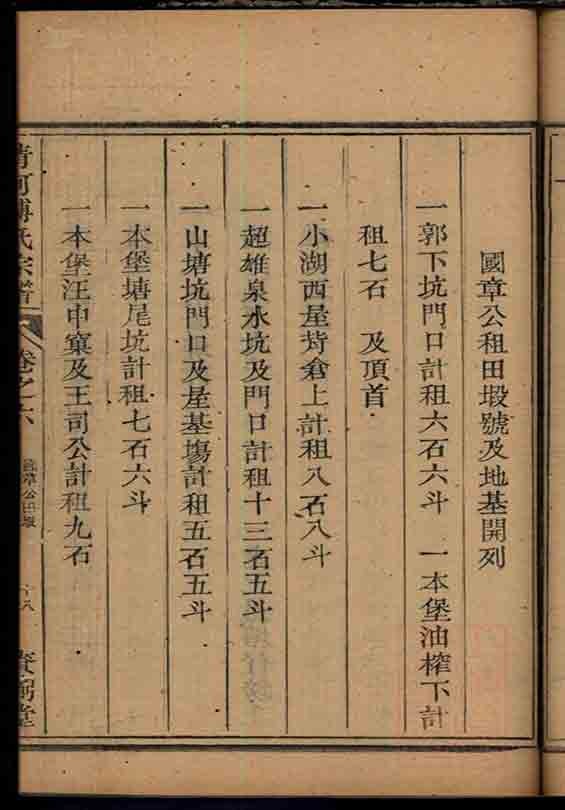 國章公租田塅號及地基開列
一郭下坑門口計租六石六斗　一本堡油榨下計
租七石　及頂首
一小湖西屋背倉上計租八石八斗
一超雄泉水坑及門口計租十三石五斗
一山塘坑門口及屋基塲計租五石五斗
一本堡塘尾坑計租七石六斗
一本堡汪中窠及王司公計租九石
清河傅氏宗譜　卷之六　國章公田塅　十八